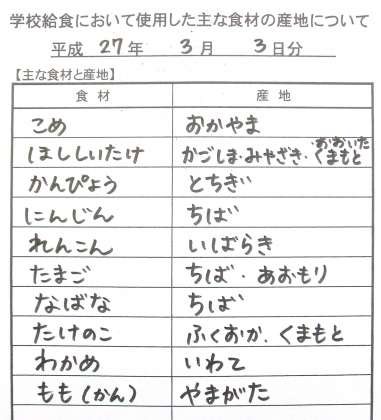 学校給食において使用した主な食材の産地について
平成 27 年 3 月 3 日分
【主な食材と産地】
食材 産地
こめ おかやま
ほししいたけ かごしま・みやざき・くまもと・おおいた
かんぴょう とちぎ
にんじん ちば
れんこん いばらき
たまご ちば・あおもり
なばな ちば
たけのこ ふくおか、くまもと
わかめ いわて
もも(かん) やまがた